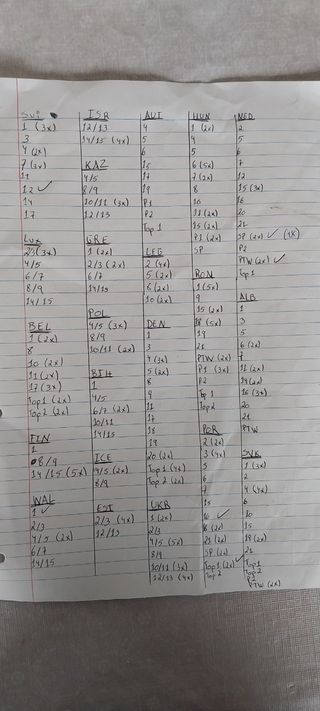 SUI
1 (3x)
3
4 (2x)
7 (3x)
11
12 ✓
14
17
LUX
2/3 (3x)
4/5
6/7
8/9
14/15
BEL
1 (2x)
8
10 (2x)
11 (2x)
17 (3x)
Top1 (2x)
Top2 (2x)
FIN
1
8/9
14/15 (5x)
WAL
1 ✓
2/3
4/5 (2x)
6/7
14/15
ISR
12/13
14/15 (4x)
KAZ
4/5
8/9
10/11 (3x)
12/13
GRE
1 (2x)
2/3 (2x)
6/7
14/15
POL
4/5 (3x)
8/9
10/11 (2x)
BIH
1
4/5
6/7 (2x)
10/11
14/15
ICE
4/5 (2x)
8/9
EST
2/3 (4x)
12/13
AUT
4
5
6
15
17
P1
P2
Top 1
LEG
2 (4x)
5 (2x)
8 (2x)
10 (2x)
DEN
1
3
4 (3x)
5 (2x)
8
9
11
17
18
19
20 (2x)
Top1 (4x)
Top 2 (2x)
UKR
1 (2x)
2/3
4/5 (5x)
8/9
10/11 (3x)
12/13 (4x)
HUN
1 (2x)
4
5
6 (5x)
7 (2x)
8
10
11 (2x)
15 (2x)
P1 (2x)
SP
ROM
1 (5x)
9
15 (2x)
18 (5x)
19
21
PTW (2x)
P1 (3x)
P2
Top 1
Top2
POR
2 (2x)
3 (4x)
5
6
7
15
16 ✓
18 (2x)
21 (2x)
SP (2x)
Top1 (2x) ✓
Top2
NED
2
5
6
7
12
15 (3x)
16
20
21
SP (2x) ✓ (1x)
P2
PTW (2x) ✓
Top1
ALB
1
3
5
6 (2x)
9
11 (2x)
14 (2x)
16 (3x)
20
21
PTW
SVK
1 (3x)
2
4 (4x)
7
10
15
18 (2x)
21
Top1
Top2
P1
PTW (2x)